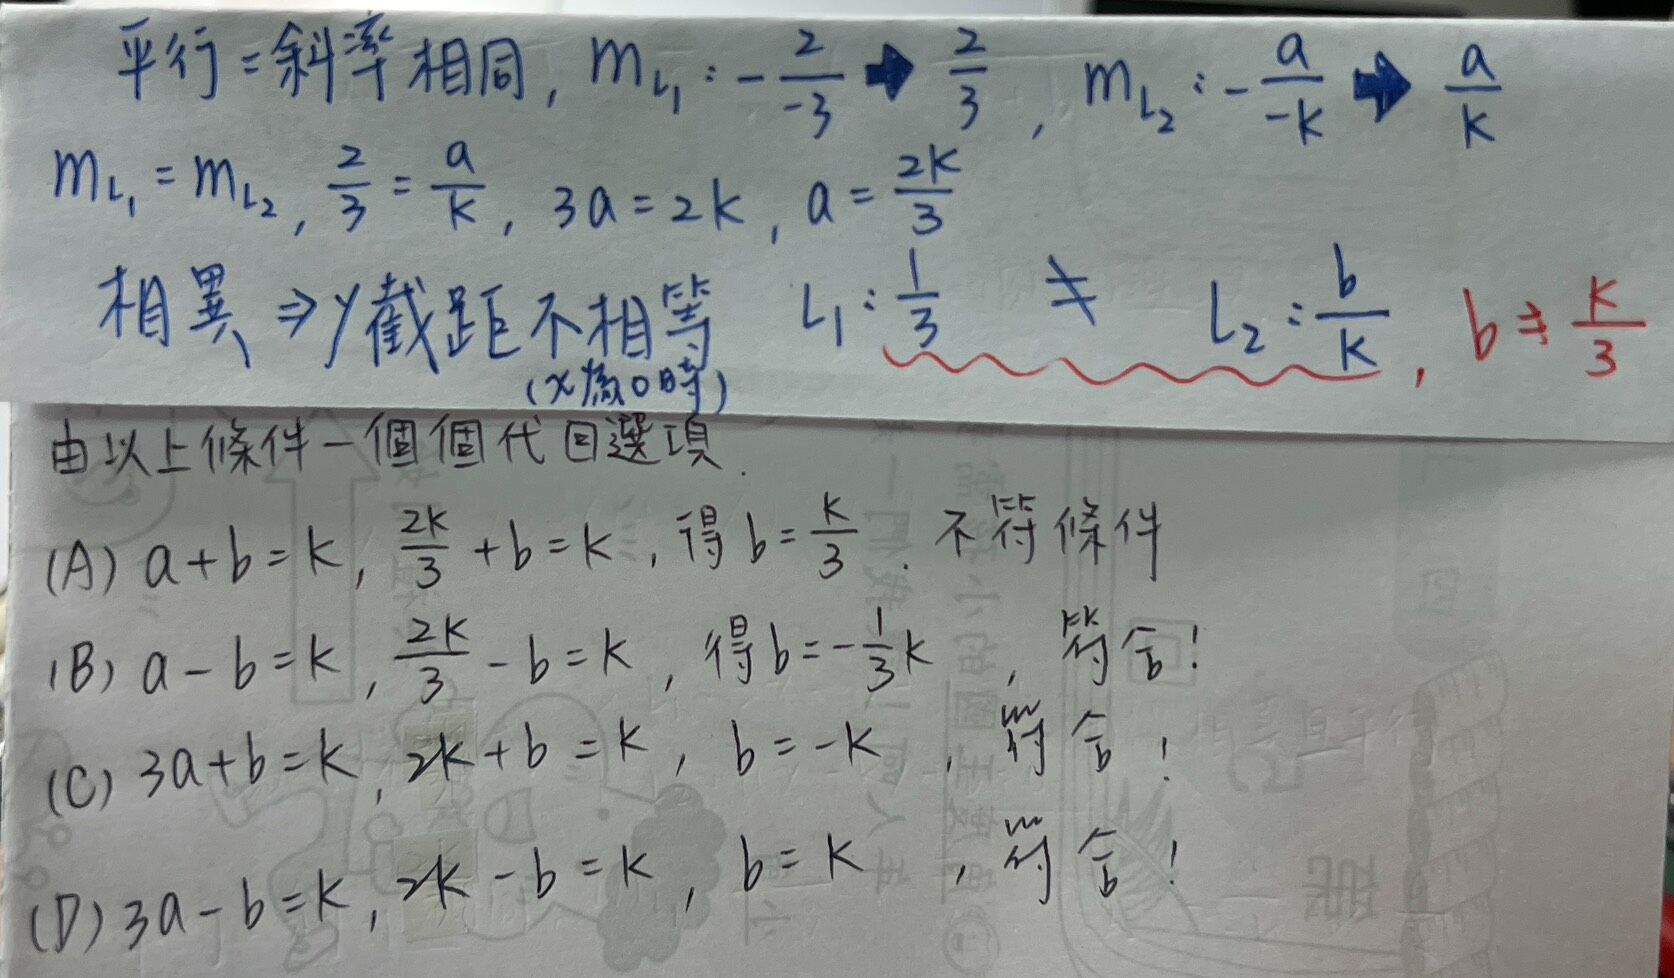 平行=斜率相同, m_{L_1}: -\frac{2}{-3} ➡ \frac{2}{3}, m_{L_2}: -\frac{a}{-k} ➡ \frac{a}{k}
m_{L_1} = m_{L_2}, \frac{2}{3} = \frac{a}{k}, 3a = 2k, a = \frac{2k}{3}
相異 ⇒ y截距不相等 L_1: \frac{1}{3} ≠ L_2: \frac{b}{k}, b ≠ \frac{k}{3}
(x為0時)
由以上條件一個個代回選項.
(A) a+b=k, \frac{2k}{3}+b=k, 得 b=\frac{k}{3}. 不符條件
(B) a-b=k, \frac{2k}{3}-b=k, 得 b=-\frac{1}{3}k, 符合!
(C) 3a+b=k, 2k+b=k, b=-k, 符合!
(D) 3a-b=k, 2k-b=k, b=k, 符合!